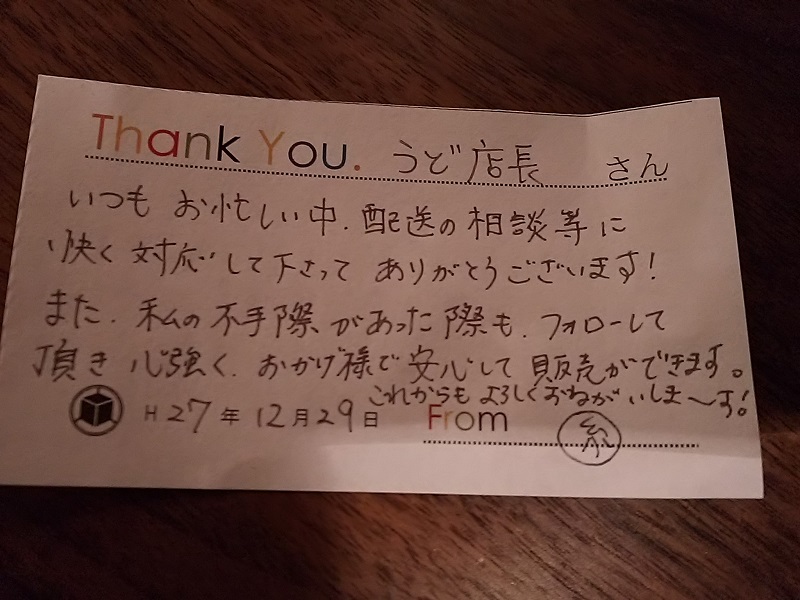 Thank You. うど店長 さん
いつも お忙しい中、配送の相談等に
快く対応して下さって ありがとうございます!
また、私の不手際があった際も、フォローして
頂き心強く、おかげ様で安心して販売ができます。
これからもよろしくおねがいしま〜す!
H27年12月29日 From